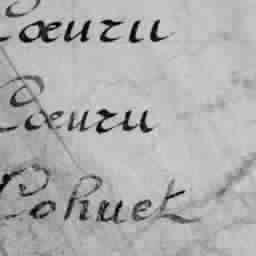 Cœuru
Cœuru
Cohuet